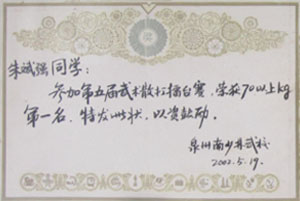 朱斌强同学：
参加第五届武术散打擂台赛，荣获70以上kg
第一名，特发此状，以资鼓励。
泉州南少林武校
2002.5.19.